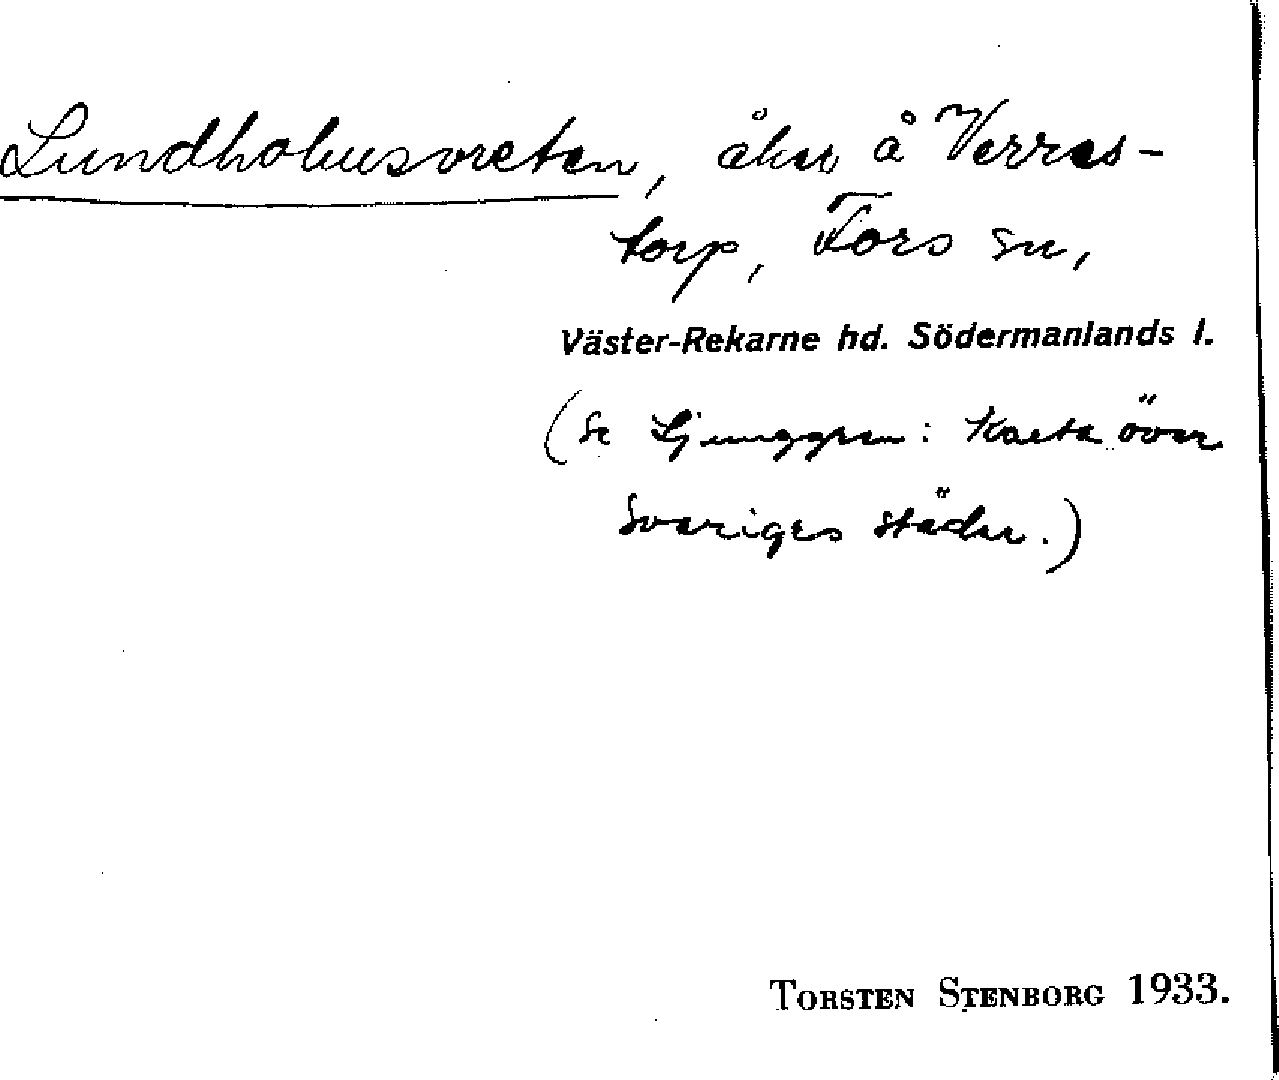 Lundholmsvreten, åker å Verres-
torp, Fors sn,
Väster-Rekarne hd. Södermanlands l.
(Se Ljunggren: Karta över
Sveriges städer.)
TORSTEN STENBORG 1933.